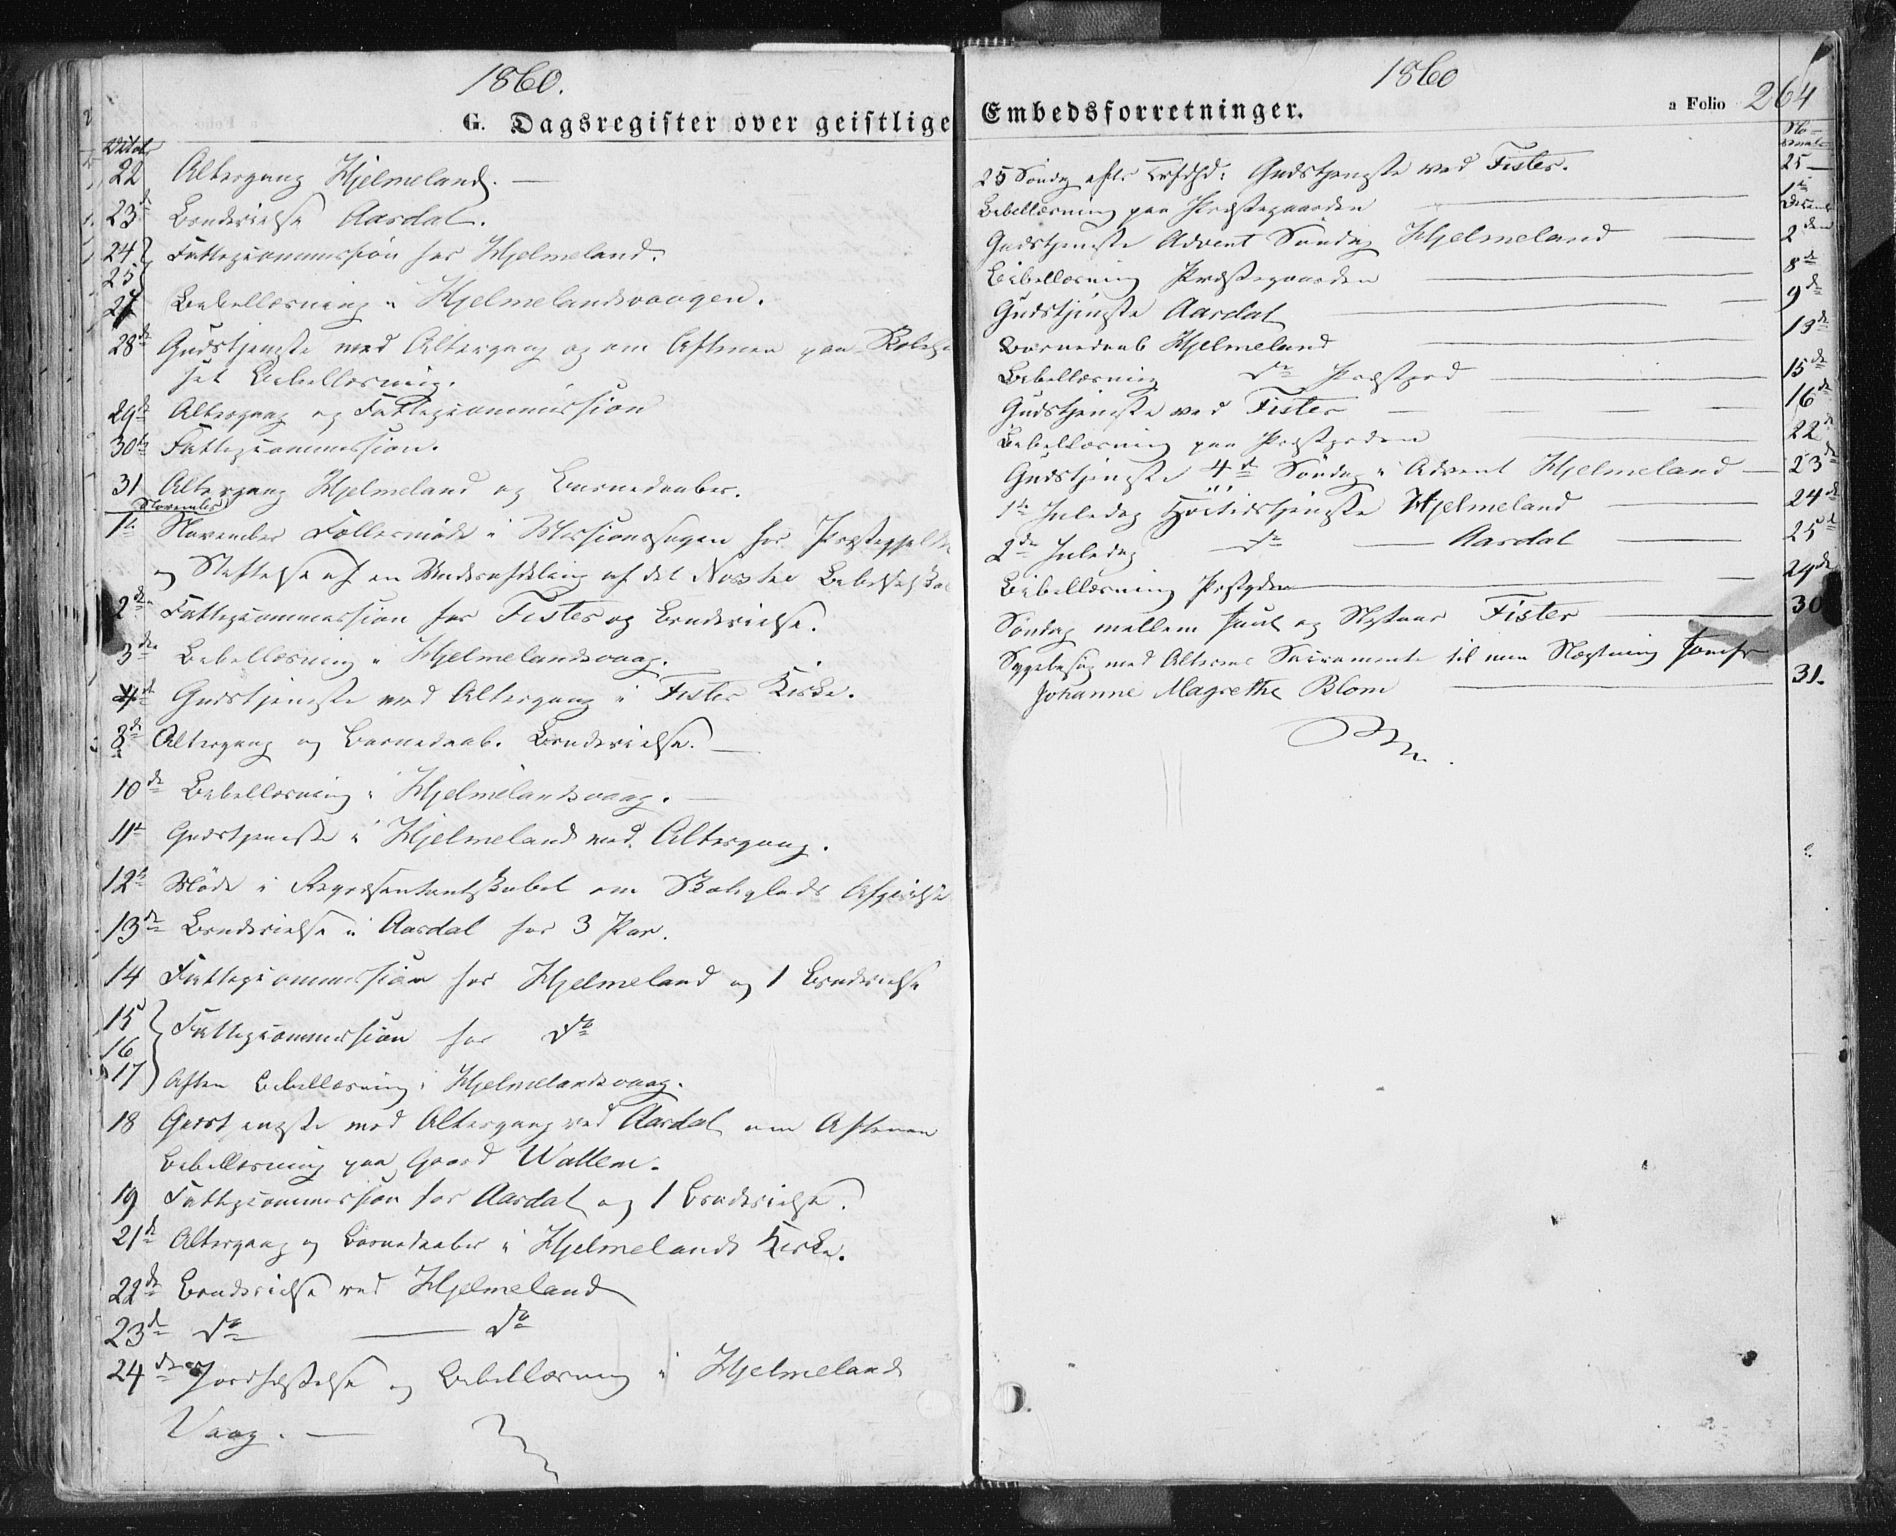 1860.
G. Dagsregister over geistlige
Octobr
22 Altergang Hjelmeland. —
23de Brudevielse Aardal.
24 Fattigcommission for Hjelmeland.
25
27 Bibellæsning i Hjelmelandsvaagen.
28de Gudstjeneste med Altergang og om Aftenen paa
Bibellæsning.
29de Altergang og Fattigcommission
30te Fattigcommission.
31 Altergang Hjelmeland og Barnedaaber.
November
1te November Fællesmøde i Missionssagen for Præstegjeldet
og Stiftelse af en Underafdeling af det Norske Bibelselskab
2den Fattigcommission for Fister og Brudevielse.
3die Bibellæsning i Hjelmelandsvaag.
4de Gudstjeneste med Altergang i Fister Kirke.
8de Altergang og Barnedaab. Brudevielse. —
10de Bibellæsning i Hjelmelandsvaag. —
11te Gudstjeneste i Hjelmeland med Altergang.
12te Møde i Repræsentantskabet om
13de Brudevielse i Aardal for 3 Par.
14 Fattigcommission for Hjelmeland og 1 Brudevielse
15
16 Fattigcommission for do
17 Aften Bibellæsning i Hjelmelandsvaag.
18 Gudstjeneste med Altergang ved Aardal, om Aftenen
Bibellæsning paa Gaard Wallem.
19 Fattigcommission for Aardal og 1 Brudevielse.
21de Altergang og Barnedaaber i Hjelmelands Kirke.
22de Brudevielse ved Hjelmeland
23de do — do
24de Jordfæstelse og Bibellæsning i Hjelmelands
Vaag. —
1860
Embedsforretninger.
a Folio 264
November
25 Søndag efter Trefdhd: Gudstjeneste ved Fister. 25 —
Bibellæsning paa Præstegaarden — 1te December
Gudstjeneste Advent Søndag Hjelmeland — 2den
Bibellæsning Præstegaarden — 8de
Gudstjeneste Aardal — 9de
Barnedaab Hjelmeland — 13de
Bibellæsning do Præstgrd — 15de
Gudstjeneste ved Fister — 16de
Bibellæsning paa Præstgrden — 22de
Gudstjeneste 4de Søndag i Advent Hjelmeland — 23de
1te Juledag Høitidstjeneste Hjelmeland — 24de
2den Juledag — do — Aardal — 25de
Bibellæsning Præstgrden — 29de
Søndag mellem Juul og Nytaar Fister — 30
Sygebesøg med Alterens Sacramente til min Jomfr
Johanne Magrethe Blom — 31.